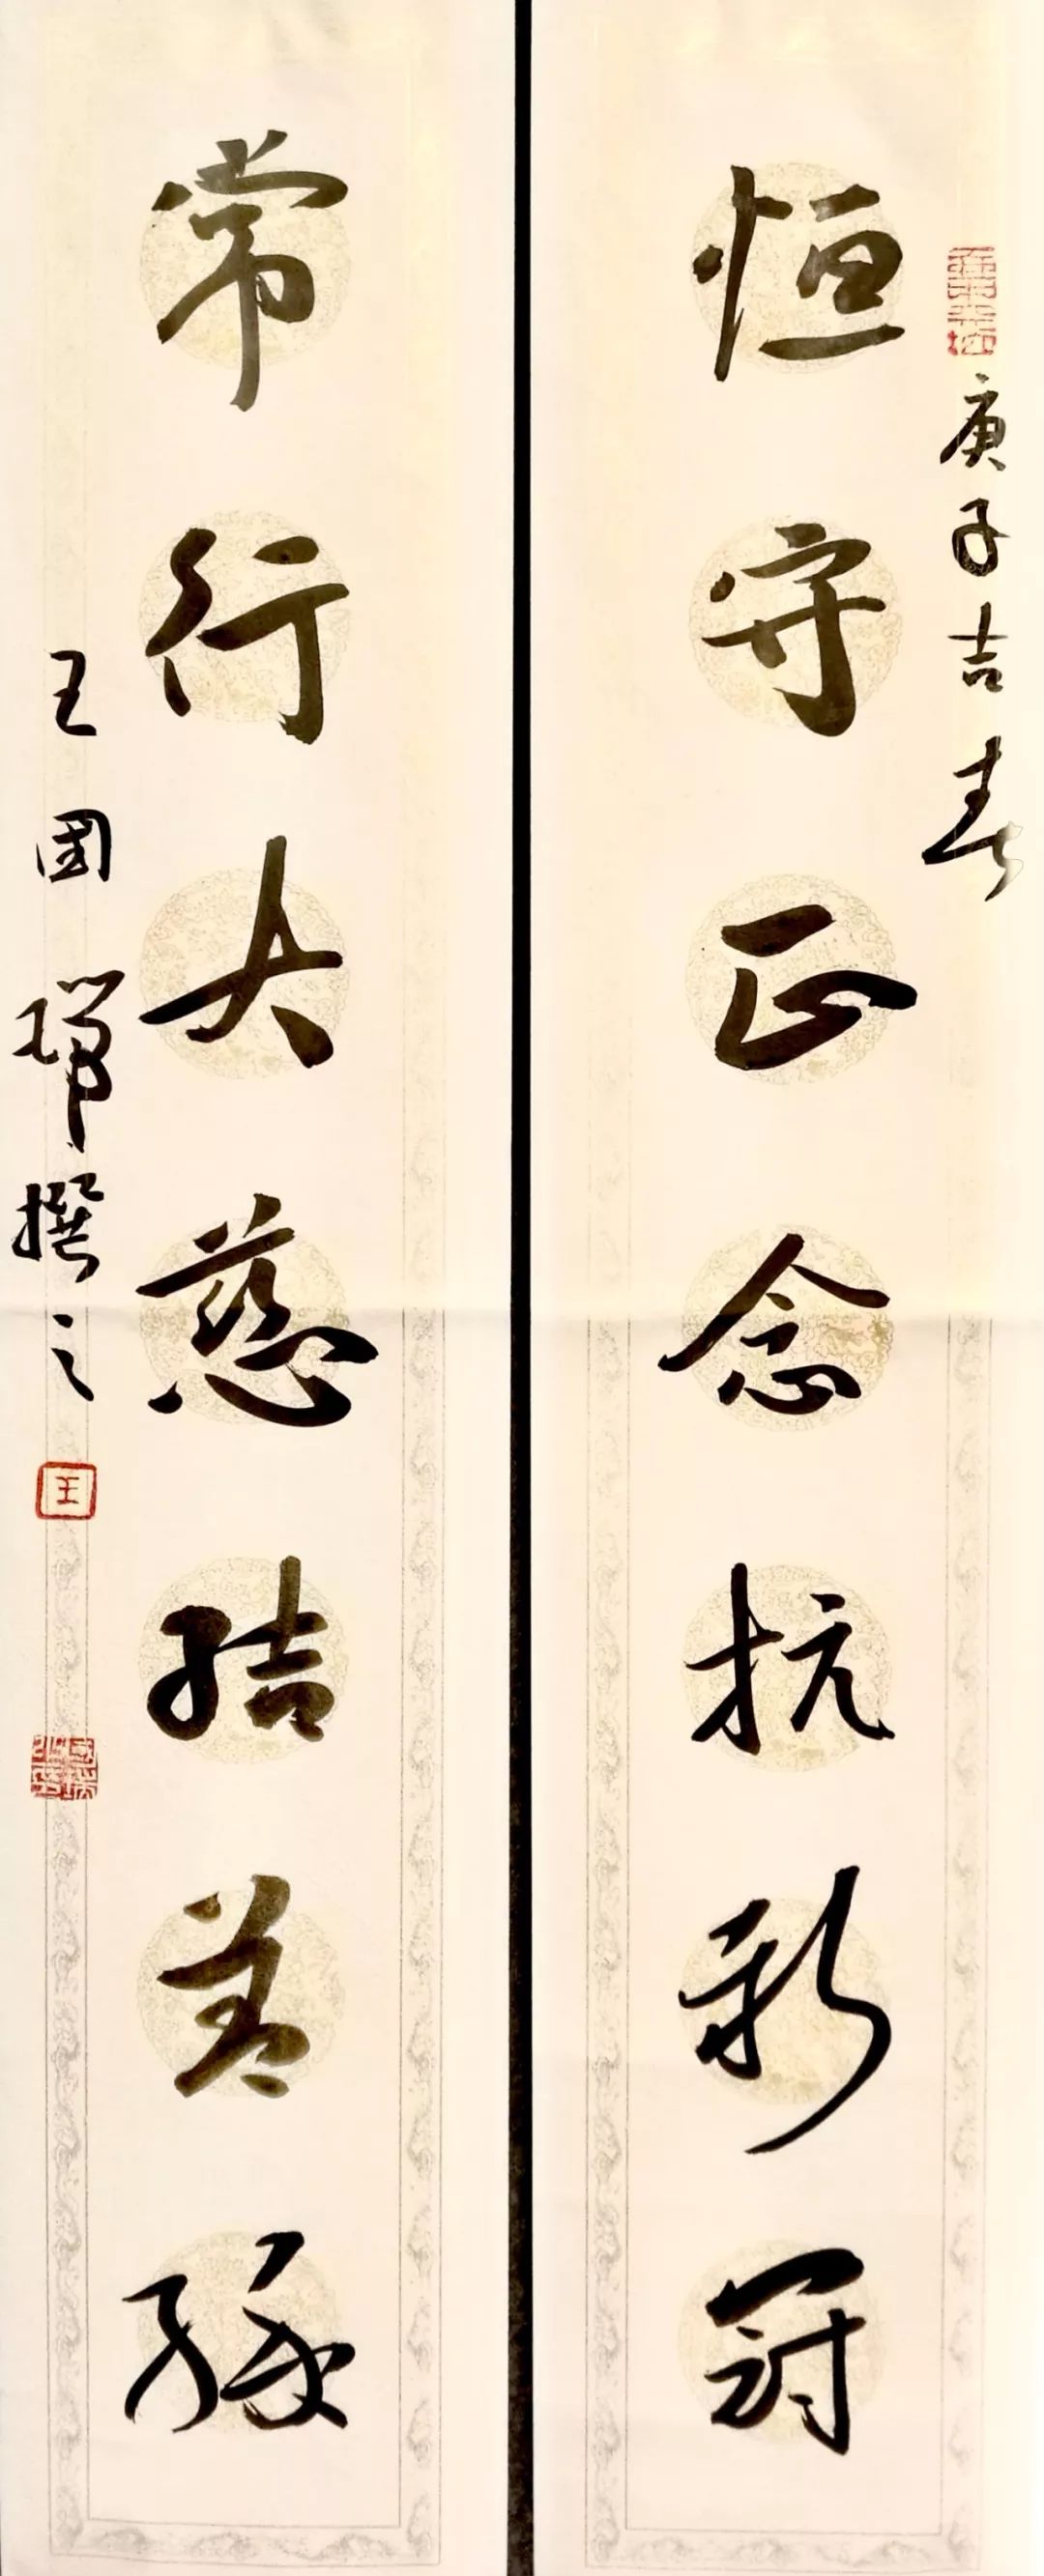 庚子吉春
恒守正念抗新冠
常行大慈结善缘
王国瑞撰之
王